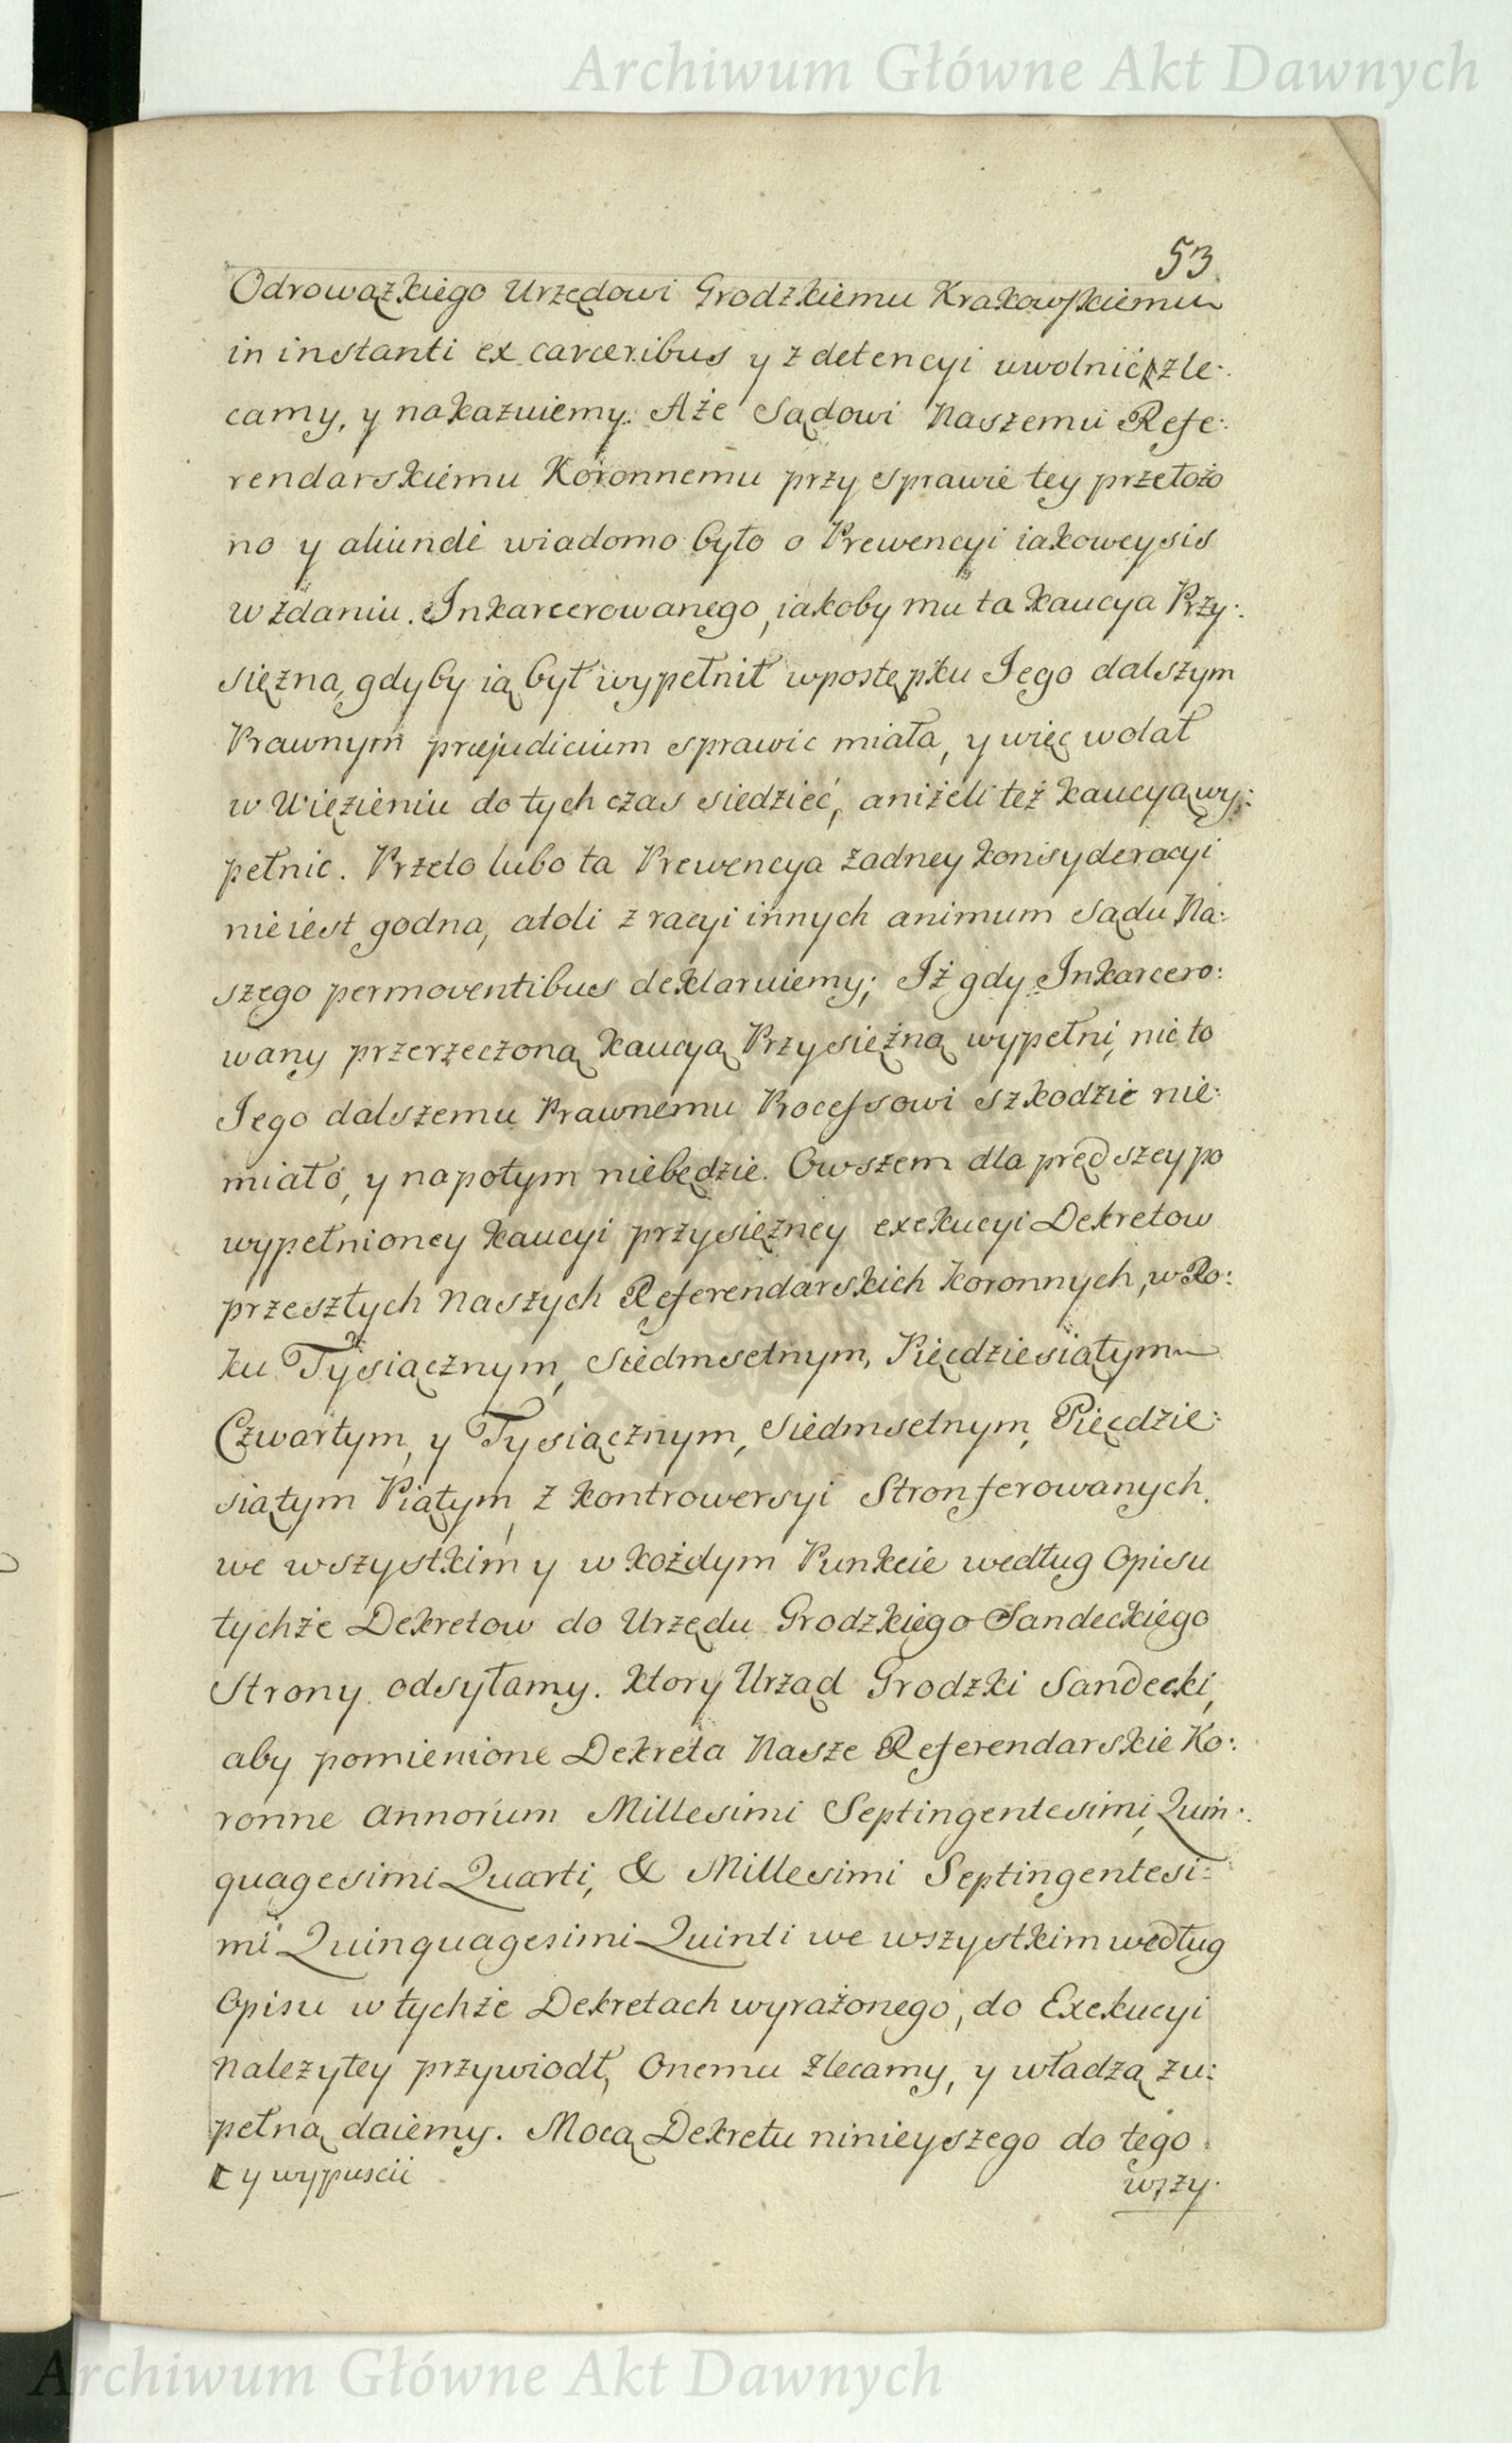 Archiwum Główne Akt Dawnych
53
Odrowązkiego Urzędowi Grodzkiemu Krakowskiemu
in instanti ex carceribus y z detencyi uwolnić zle:
camy, y nakazuiemy. Aże Sądowi Naszemu Refe:
rendarskiemu Koronnemu przy sprawie tey przełożo
no y aliunde wiadomo było o Prewencyi iakoweysis
w zdaniu Inkarcerowanego, iakoby mu ta kaucya Przy:
siężna, gdyby ią był wypełnił w postępku Iego dalszym
Prawnym præjudicium sprawic miała, y więc wolał
w Więzieniu do tych czas siedzieć, aniżeli też kaucyą wy:
pełnic. Przeto lubo ta Prewencya zadney konsyderacyi
nie iest godna, atoli z racyi innych animum Sądu Na:
szego permoventibus deklaruiemy; Iż gdy Inkarcero:
wany przerzeczoną kaucyą Przysiężną wypełni, nic to
Iego dalszemu Prawnemu Processowi szkodzic nie:
miało, y napotym niebędzie. Owszem dla prędszey po
wypełnioney kaucyi przysiężney exekucyi Dekretow
przeszłych Naszych Referendarskich Koronnych, w Ro:
ku Tysiącznym, Siedmsetnym, Pięcdziesiątym
Czwartym, y Tysiącznym, Siedmsetnym, Pięcdzie:
siątym Piątym z kontrowersyi Stron ferowanych
we wszystkim y w kożdym Punkcie według Opisu
tychże Dekretow do Urzędu Grodzkiego Sandeckiego
Strony odsyłamy. Ktory Urząd Grodzki Sandecki,
aby pomienione Dekreta Nasze Referendarskie Ko:
ronne Annorum Millesimi Septingentesimi, Quin:
quagesimi Quarti, & Millesimi Septingentesi:
mi Quinquagesimi Quinti we wszystkim według
Opisu w tychże Dekretach wyrażonego, do Exekucyi
Nalezytey przywiodł, Onemu Zlecamy, y władzą zu:
pełną daiemy. Mocą Dekretu ninieyszego do tego
y wypuscic
wszy:
Archiwum Główne Akt Dawnych